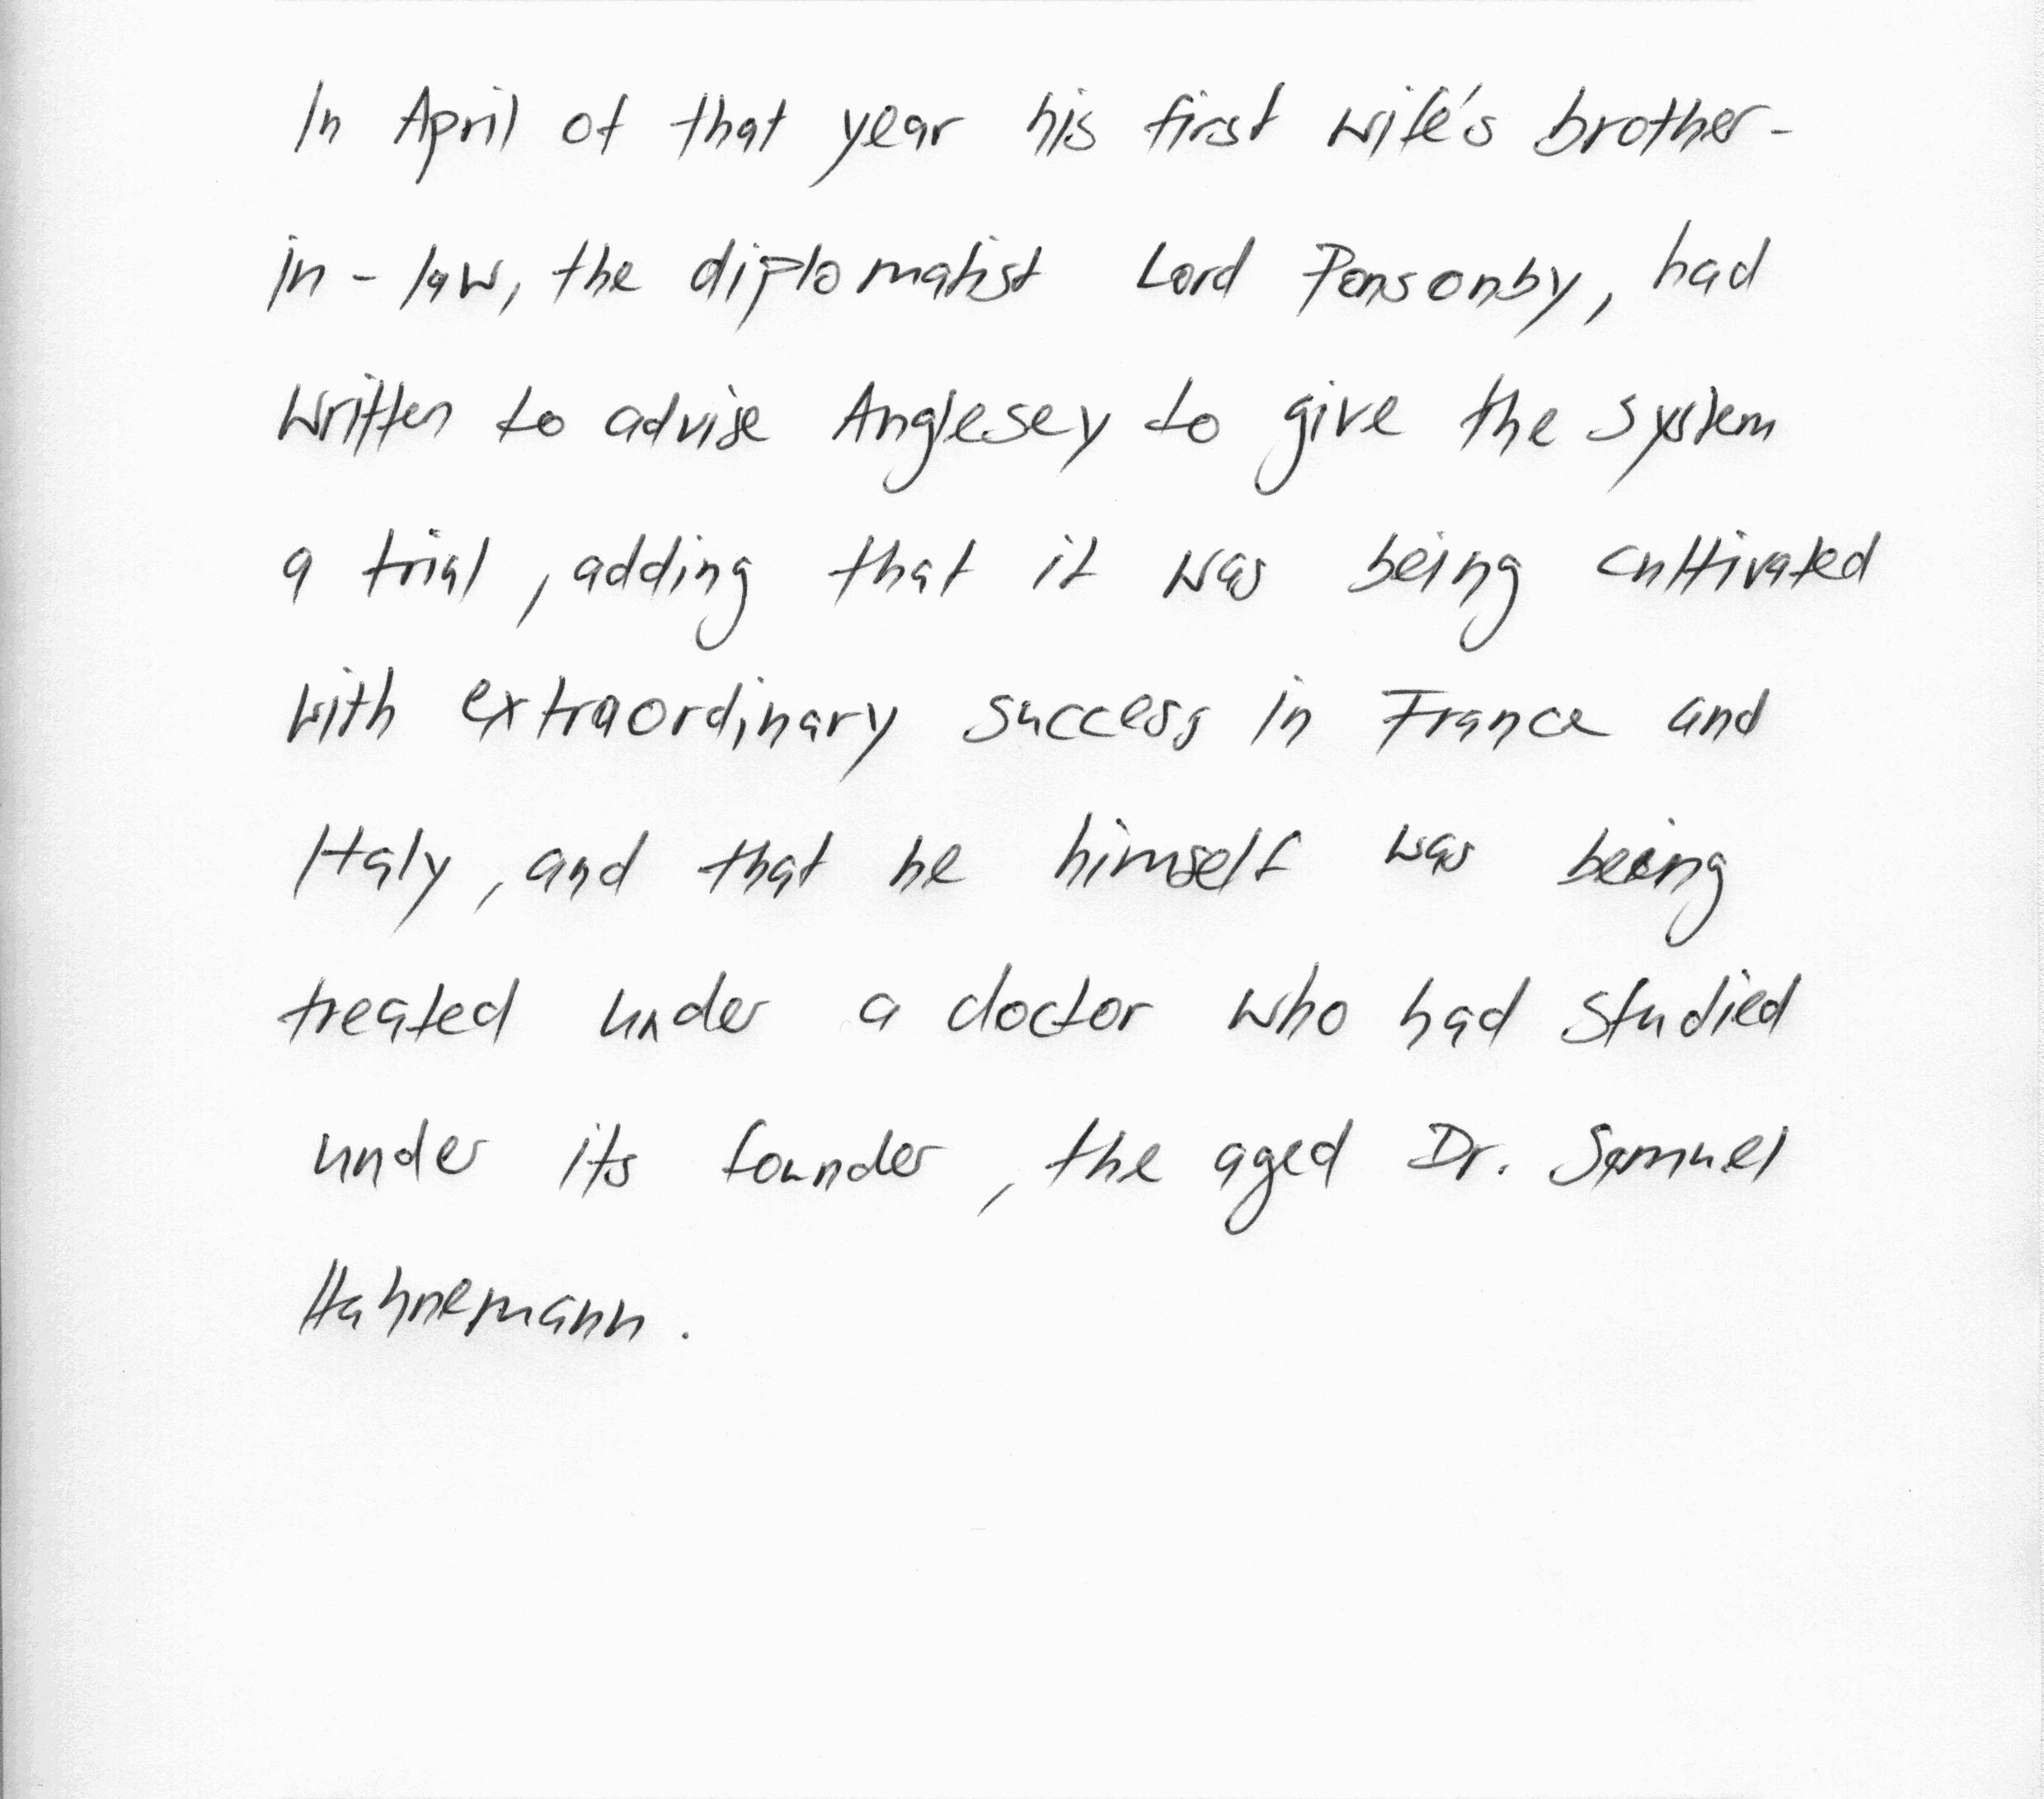 In April of that year his first wife's brother-
in-law, the diplomatist Lord Ponsonby, had
written to advise Anglesey to give the system
a trial, adding that it was being cultivated
with extraordinary success in France and
Italy, and that he himself was being
treated under a doctor who had studied
under its founder, the aged Dr. Samuel
Hahnemann.